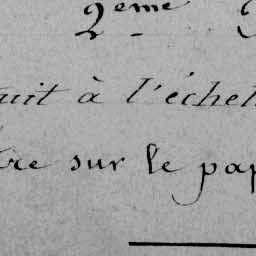 2eme
uit à l'échel
re sur le pap